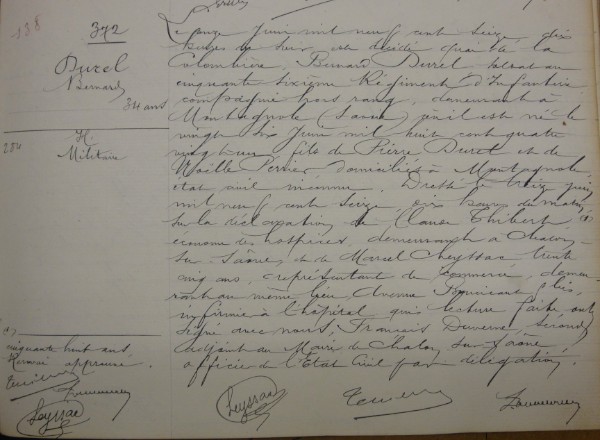 138
372
Duret
Bernard
34 ans
284
H.
Militaire
Le onze Juin mil neuf cent seize, dix
heures du soir, est décédé quai de la
Colombière, Bernard Duret soldat au
cinquante sixième Régiment d'Infanterie
compagnie hors rang, demeurant à
Montagnole (Savoie) où il est né le
vingt six Juin mil huit cent quatre
vingt un, fils de Pierre Duret et de
Noëlle Perrier, domiciliés à Montagnole,
état civil inconnu. Dressé le treize juin
mil neuf cent seize, dix heures du matin,
sur la déclaration de Claude Thibert (1)
économe des hospices, demeurant à Chalon-
sur-Saône, et de Marcel Cheyssac, trente
cinq ans, représentant de commerce, demeu-
rant au même lieu, Avenue bis,
infirmier à l'hôpital, qui, lecture faite ont
signé avec nous, Francois second
adjoint au Maire de Chalon-sur-Saône,
officier de l'Etat Civil par délégation.
(1)
cinquante huit ans
Renvoi approuvé.